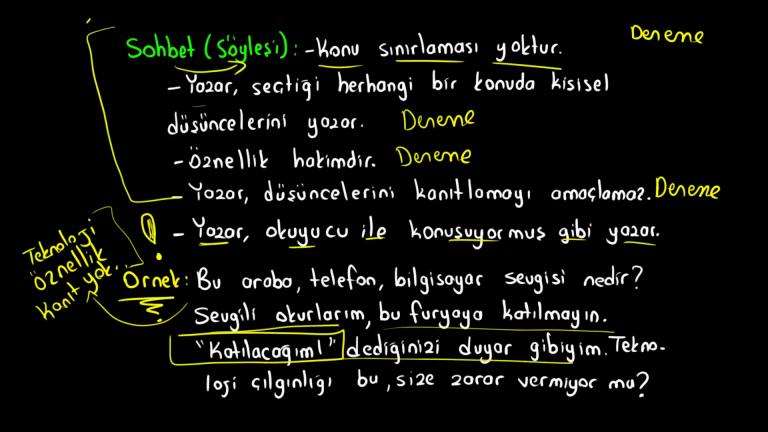 Sohbet (Söyleşi): -Konu sınırlaması yoktur. Deneme
- Yazar, seçtiği herhangi bir konuda kişisel
düşüncelerini yazar. Deneme
- Öznellik hakimdir. Deneme
- Yazar, düşüncelerini kanıtlamayı amaçlamaz. Deneme
! - Yazar, okuyucu ile konuşuyormuş gibi yazar.
Teknoloji
Öznellik
Kanıt yok.
Örnek: Bu araba, telefon, bilgisayar sevgisi nedir?
Sevgili okurlarım, bu furyaya katılmayın.
"Katılacağım!" dediğinizi duyar gibiyim. Tekno-
loji çılgınlığı bu, size zarar vermiyor mu?